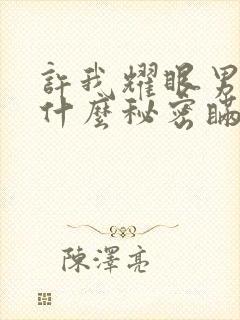 許我耀眼男
什麼秘密瞞
陳澤亮